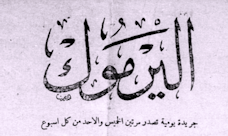 اليرموك
جريدة يومية تصدر مرتين الخميس والاحد من كل اسبوع